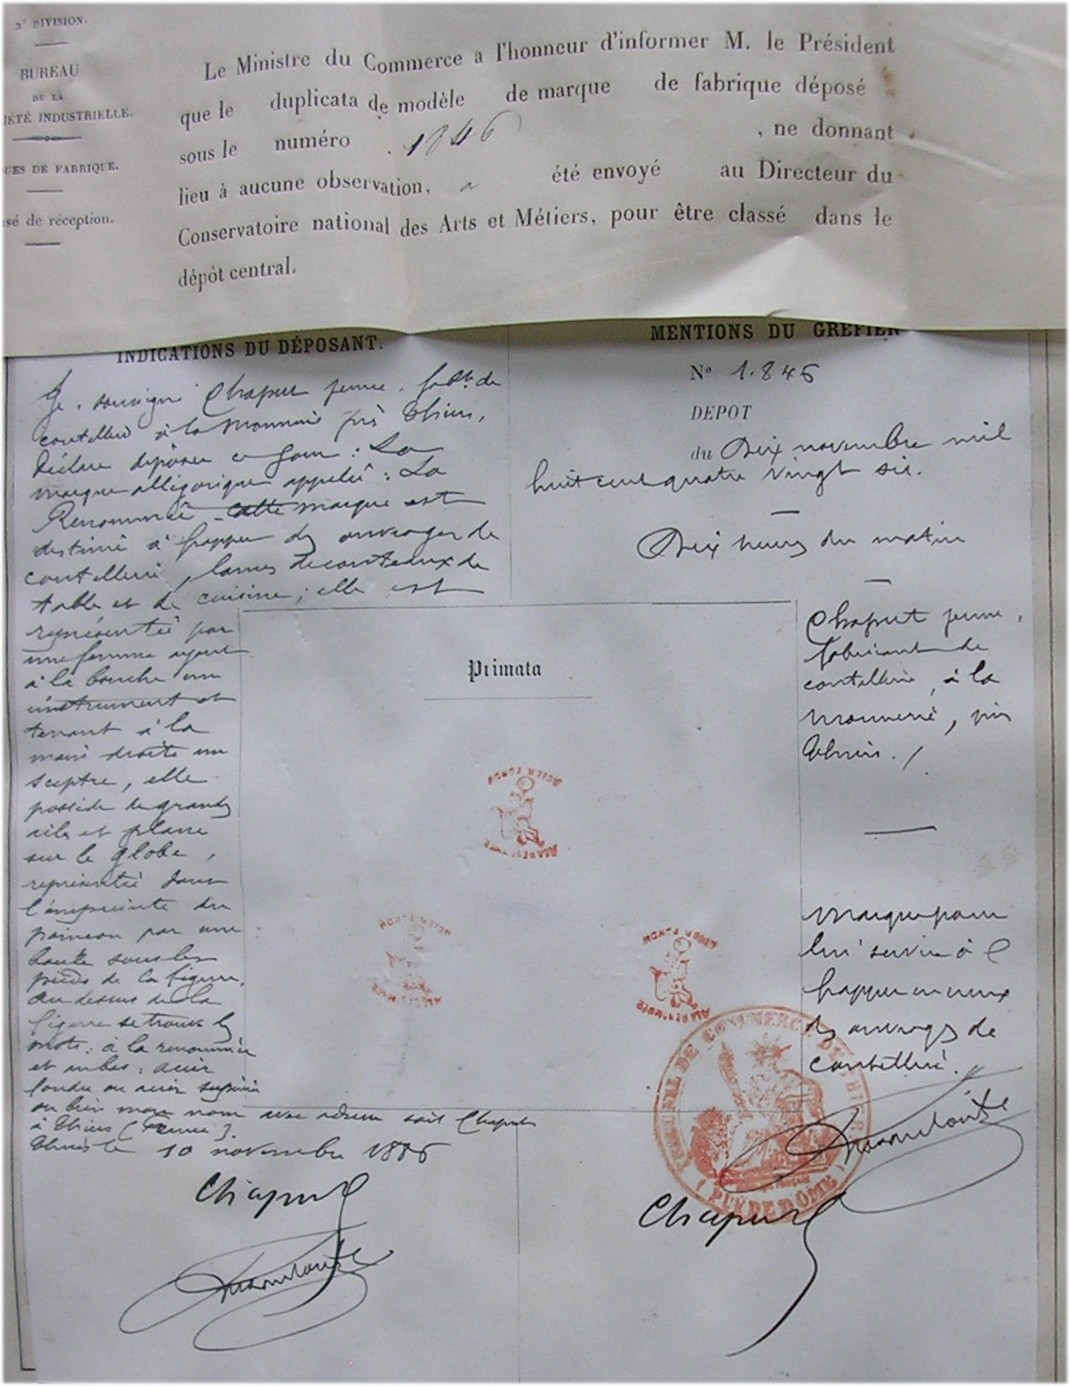 3e DIVISION.
BUREAU
DE LA
IÉTÉ INDUSTRIELLE.
UES DE FABRIQUE.
sé de réception.
Le Ministre du Commerce a l'honneur d'informer M. le Président
que le duplicata de modèle de marque de fabrique déposé
sous le numéro 1846 , ne donnant
lieu à aucune observation, a été envoyé au Directeur du
Conservatoire national des Arts et Métiers, pour être classé dans le
dépôt central.
INDICATIONS DU DÉPOSANT.
Je soussigné Chaput jeune, fabt. de
coutellerie à la Monnerie près Thiers,
déclare déposer ce jour : La
marque allégorique appelée : La
Renommée cette marque est
destinée à frapper des ouvrages de
coutellerie, lames de couteaux de
table et de cuisine ; elle est
représentée par
une femme ayant
à la bouche un
instrument et
tenant à la
main droite un
sceptre, elle
possède de grandes
ailes et plane
sur le globe,
représenté dans
l'empreinte du
poinçon par une
boule sous les
pieds de la figure,
au dessus de la
figure se trouve les
mots : à la renommée
et au bas : acier
fondu ou acier supérieur
ou bien mon nom avec adresse soit Chaput
à Thiers (France).
Thiers le 10 novembre 1886
Chaput
MENTIONS DU GREFIER
No 1.846
DEPOT
du Dix novembre mil
huit cent quatre vingt six.
Dix heures du matin
Chaput jeune,
fabricant de
coutellerie, à la
Monnerie, près
Thiers.
Marque pour
lui servir à
frapper en creux
des ouvrages de
coutellerie.
Primata
TRIBUNAL DE COMMERCE DE THIERS
(PUY DE DÔME)
Chaput